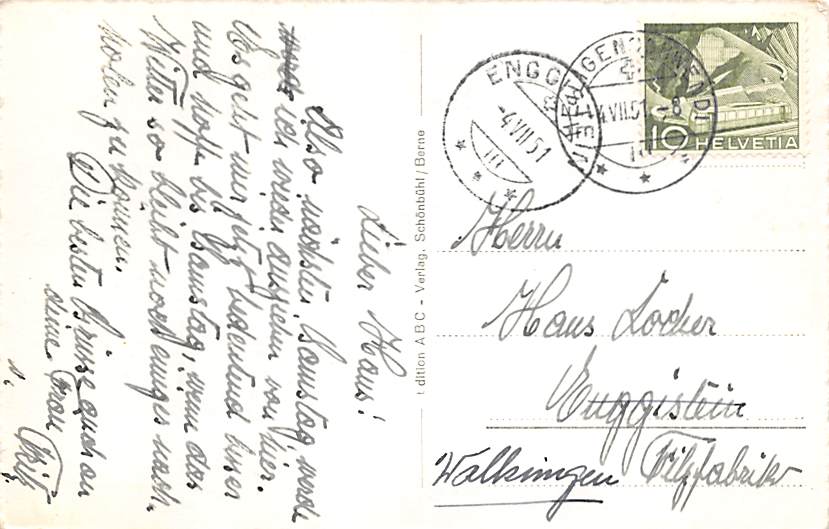 Lieber Hans!
Also nächsten Samstag werde
ich wieder ausziehn von hier.
Es geht mir jetzt bedeutend besser
und hoffe bis Samstag, wenn das
Wetter so bleibt noch einiges nach-
holen zu können.
Die besten Grüsse auch an
deine Frau
Fritz
Edition ABC - Verlag, Schönbühl / Berne
4.VII.51
III
4.VII.51-8
10 HELVETIA
Herrn
Hans Locher
Enggistein
Walkringen Filzfabrik